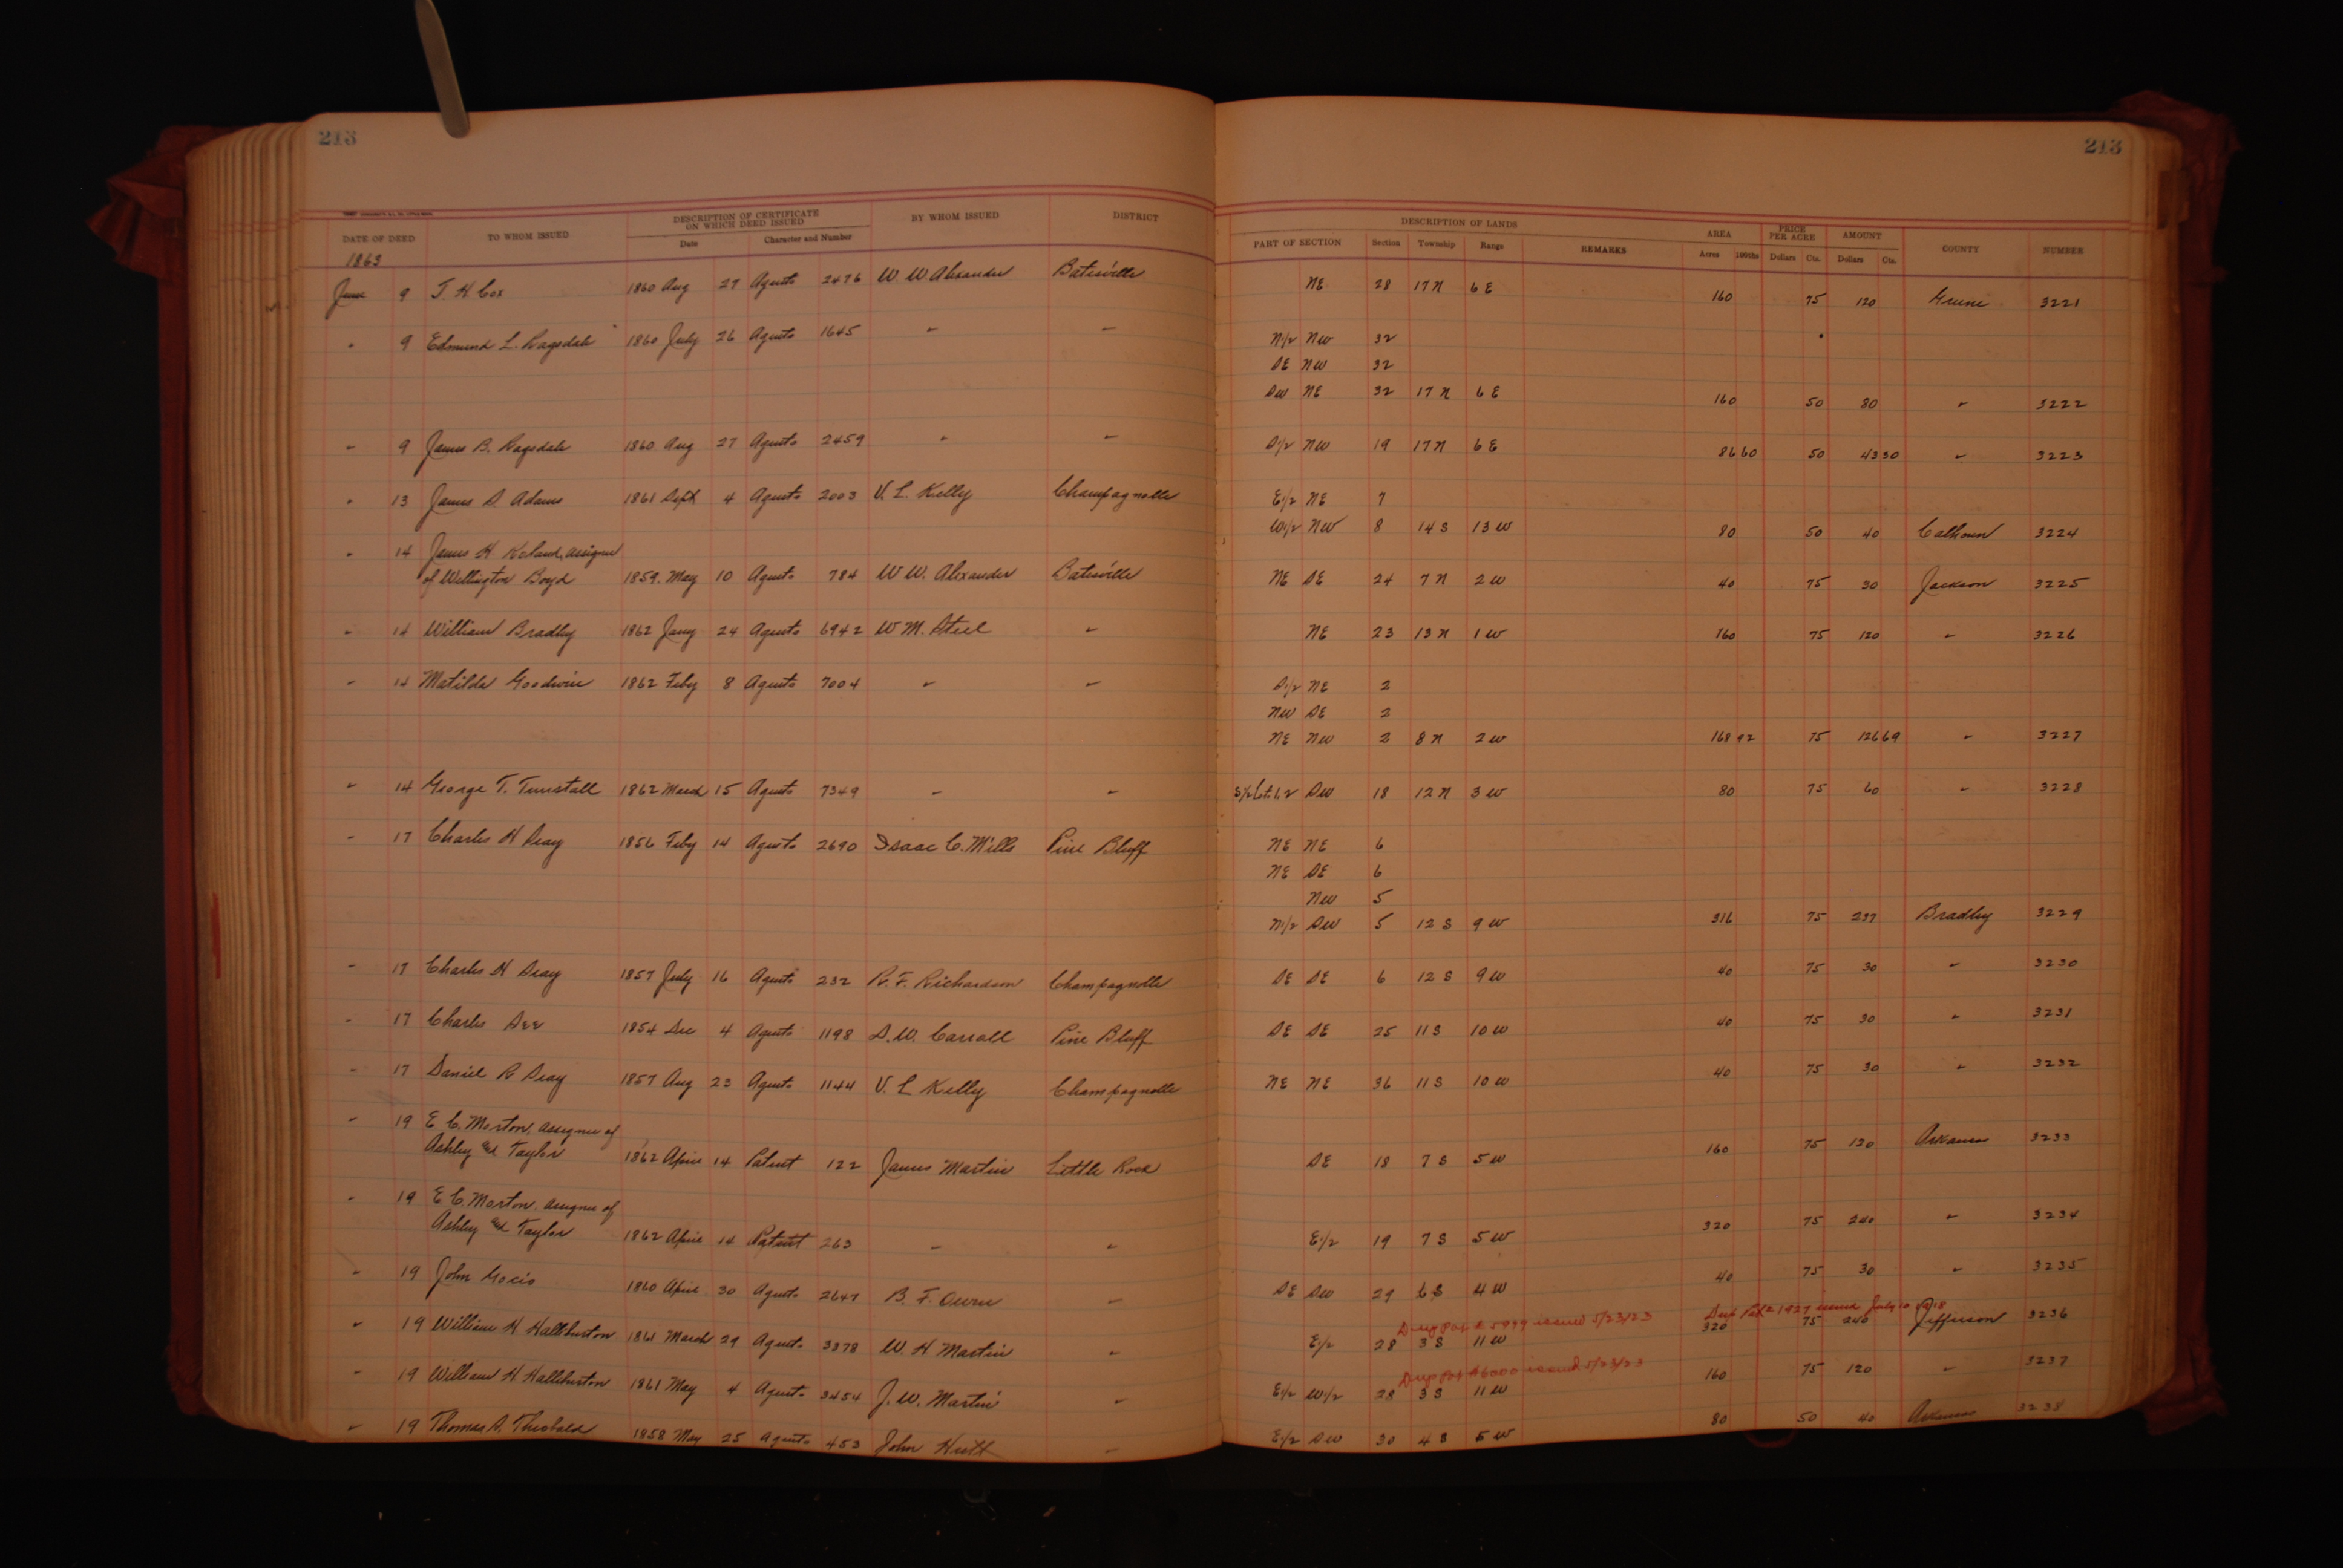 213
213
DATE OF DEED TO WHOM ISSUED DESCRIPTION OF CERTIFICATE ON WHICH DEED ISSUED BY WHOM ISSUED DISTRICT DESCRIPTION OF LANDS AREA PRICE PER ACRE AMOUNT COUNTY NUMBER
Date Character and Number PART OF SECTION Section Township Range REMARKS Acres 100ths Dollars Cts. Dollars Cts.
1863
June 9 T. H. Cox 1860 Aug 27 Agusts 2476 W. W. Alexander Batesville NE 28 17 N 6 E 160 75 120 Greene 3221
" 9 Edmund L. Ragsdale 1860 July 26 Agusts 1645 " " N1/2 NW 32
SE NW 32
SW NE 32 17 N 6 E 160 50 80 " 3222
" 9 James B. Ragsdale 1860 Aug 27 Agusts 2459 " " S1/2 NW 19 17 N 6 E 86 60 50 43 30 " 3223
" 13 James S. Adams 1861 Sept 4 Agusts 2003 V. L. Kelly Champagnolle E1/2 NE 7
W1/2 NW 8 14 S 13 W 80 50 40 Calhoun 3224
" 14 James H assignee
of Wellington Boyd 1859 May 10 Agusts 784 W W. Alexander Batesville NE SE 24 7 N 2 W 40 75 30 Jackson 3225
" 14 William Bradley 1862 Jany 24 Agusts 6942 W M. Steel " NE 23 13 N 1 W 160 75 120 " 3226
" 14 Matilda Goodwin 1862 Feby 8 Agusts 7004 " " S1/2 NE 2
NW SE 2
NE NW 2 8 N 2 W 168 92 75 126 69 " 3227
" 14 George T. Tunstall 1862 March 15 Agusts 7349 " " S1/2 Lot 1, 2 SW 18 12 N 3 W 80 75 60 " 3228
" 17 Charles H Seay 1856 Feby 14 Agusts 2690 Isaac C. Mills Pine Bluff NE NE 6
NE SE 6
NW 5
N1/2 SW 5 12 S 9 W 316 75 237 Bradley 3229
" 17 Charles H Seay 1857 July 16 Agusts 232 R. F. Richardson Champagnolle SE SE 6 12 S 9 W 40 75 30 " 3230
" 17 Charles 1854 Dec 4 Agusts 1198 D. W. Carroll Pine Bluff SE SE 25 11 S 10 W 40 75 30 " 3231
" 17 Daniel R Seay 1857 Aug 23 Agusts 1144 V. L Kelly Champagnolle NE NE 36 11 S 10 W 40 75 30 " 3232
" 19 E. C. Morton, assignee of
Ashley and Taylor 1862 April 14 Patent 122 James Martin Little Rock SE 18 7 S 5 W 160 75 120 Arkansas 3233
" 19 E. C. Morton, assignee of
Ashley and Taylor 1862 April 14 Patent 263 " " E1/2 19 7 S 5 W 320 75 240 " 3234
" 19 John 1860 April 30 Agusts 2647 B. F. Owen " SE SW 29 6 S 4 W 40 75 30 " 3235
Dup Pat # 5999 issued 5/23/23 Dup Pat # 1927 issued July 10 1918
" 19 William H. Halliburton 1861 March 29 Agusts 3378 W. H Martin " E1/2 28 3 S 11 W 320 75 240 Jefferson 3236
Dup Pat # 6000 issued 5/23/23
" 19 William H Halliburton 1861 May 4 Agusts 3454 J. W. Martin " E1/2 W1/2 28 3 S 11 W 160 75 120 " 3237
" 19 Thomas S. Theobald 1858 May 25 Agusts 453 John Hutt " E1/2 SW 30 4 S 5 W 80 50 40 Arkansas 3238